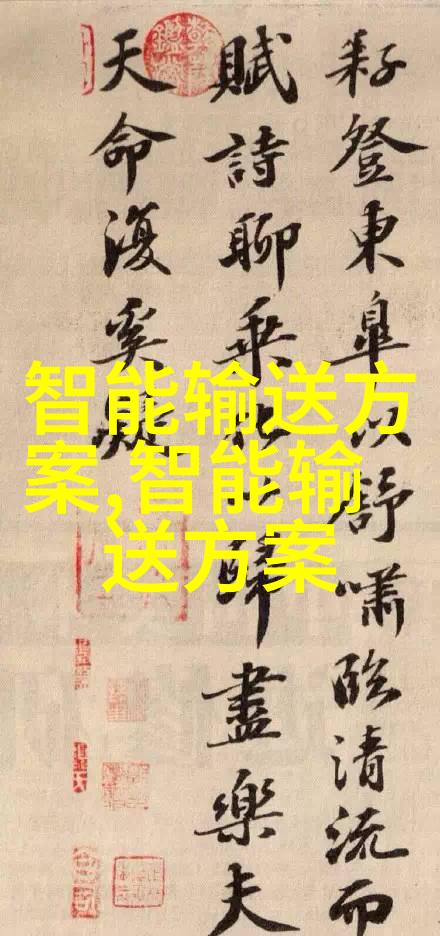 耔登東皐以舒嘯臨清流而
賦詩聊乗化以歸盡樂夫
天命復奚疑
智能输送方
案,智能输
送方案